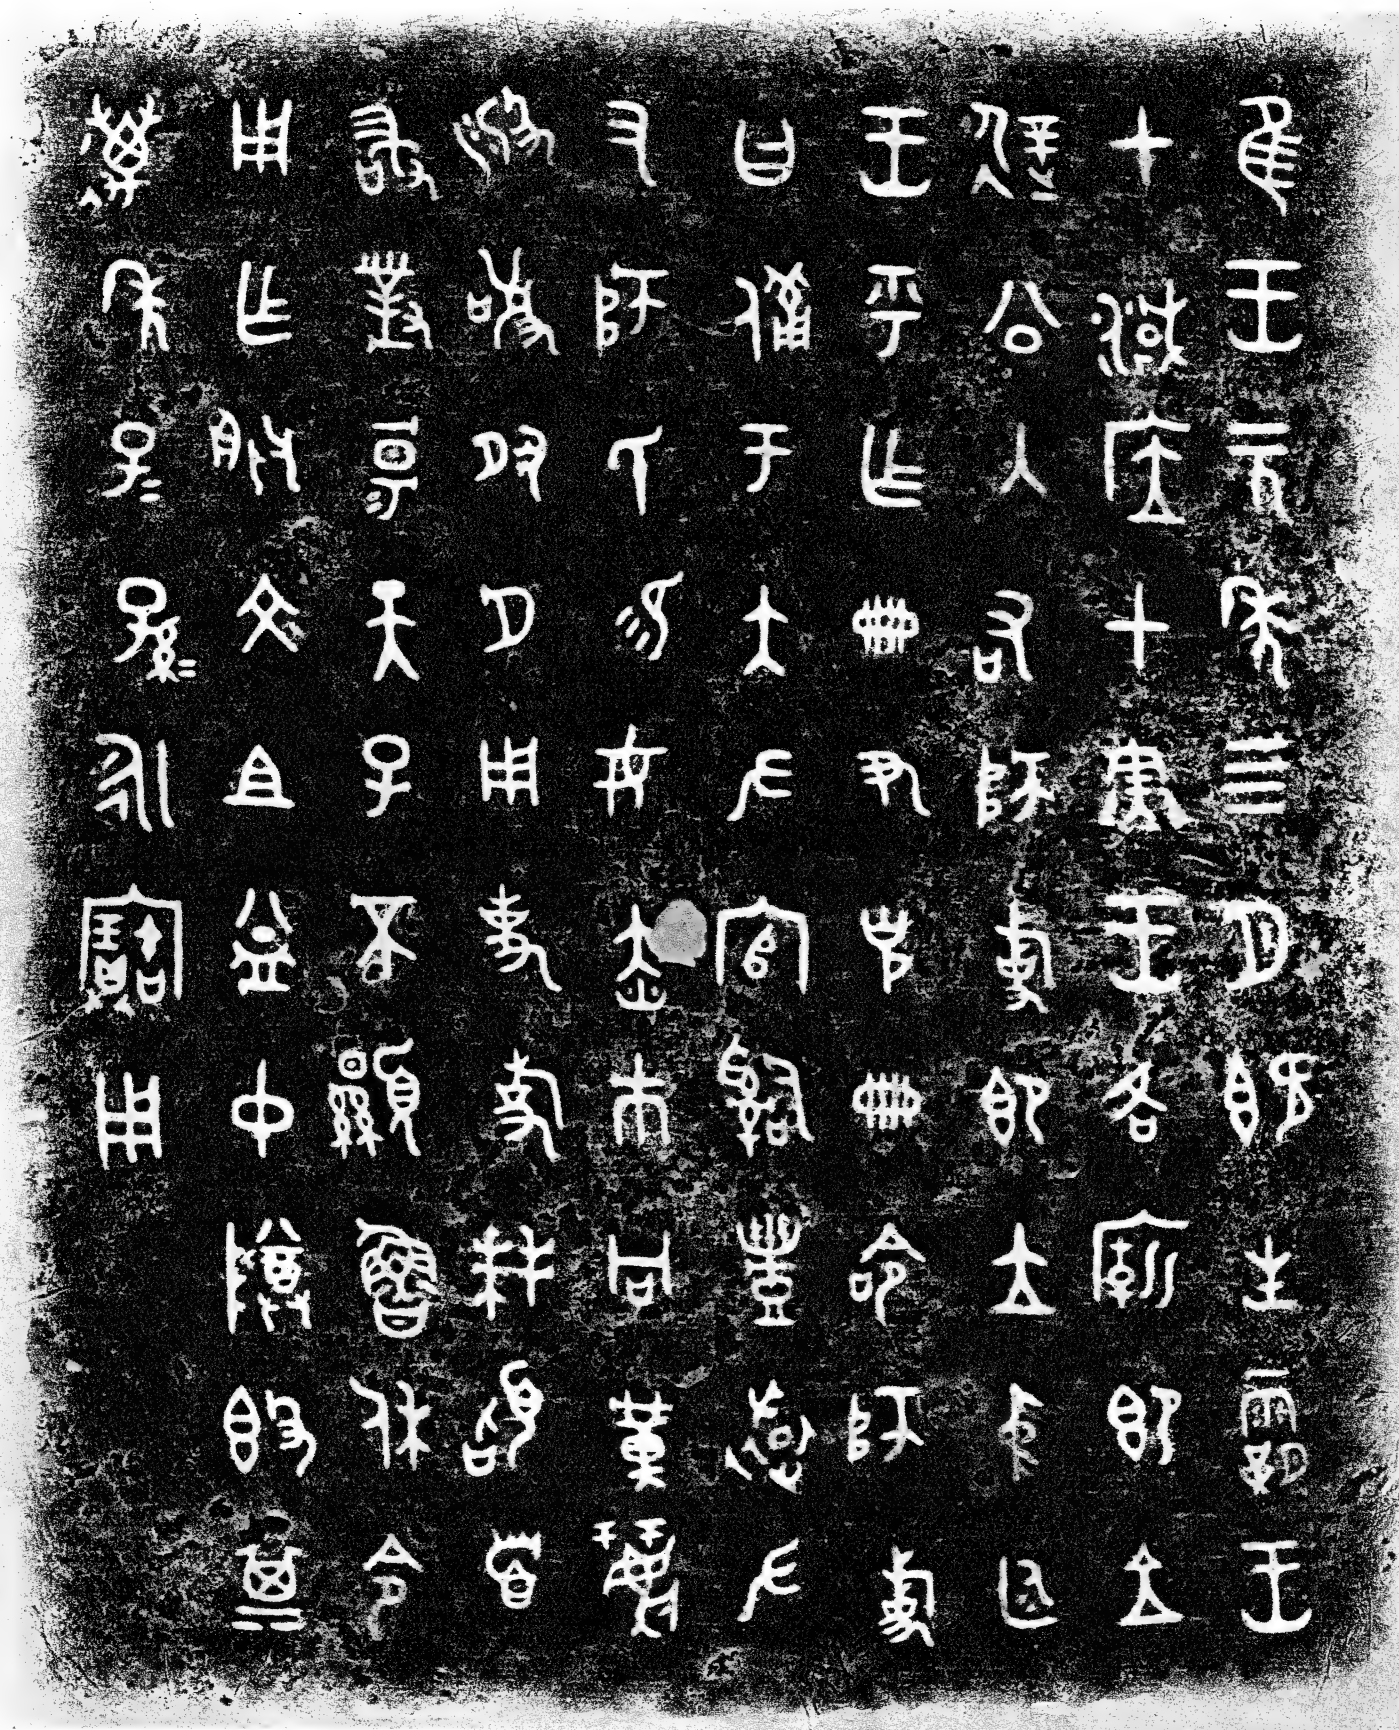 隹王元年四月既生霸王
才淢应甲寅王各廟即立
遟公入右師旋即立中廷
王乎乍冊尹克冊命師旋
曰備于大左官𤔲豐還左
又師氏易女赤巿冋黃麗
般敬夙夕用事旋拜𩒨首
敢對揚天子不顯魯休令
用乍朕文且益中尊𣪘其
萬年子=孫=永寶用